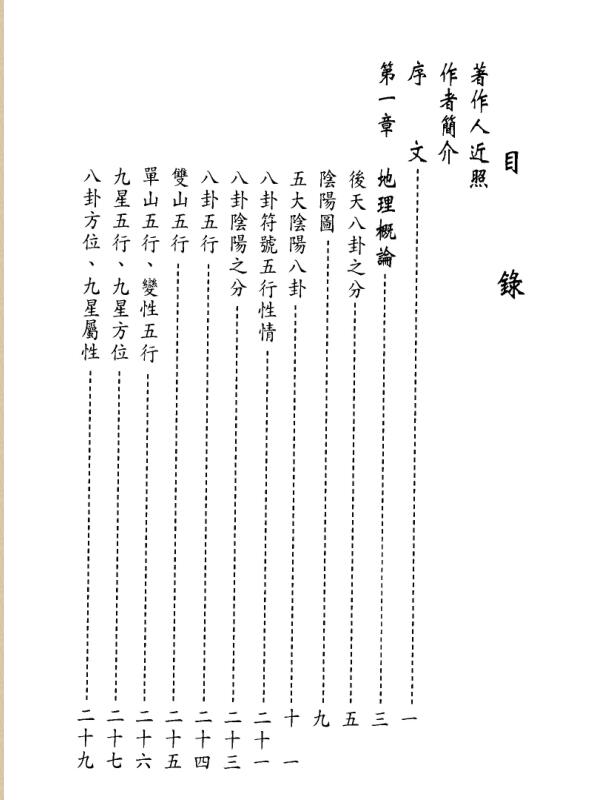 目錄
著作人近照
作者簡介
序文 一
第一章 地理概論 三
後天八卦之分 五
陰陽圖 九
五大陰陽八卦 十一
八卦符號五行性情 二十一
八卦陰陽之分 二十三
八卦五行 二十四
雙山五行 二十五
單山五行、變性五行 二十六
九星五行、九星方位 二十七
八卦方位、九星屬性 二十九